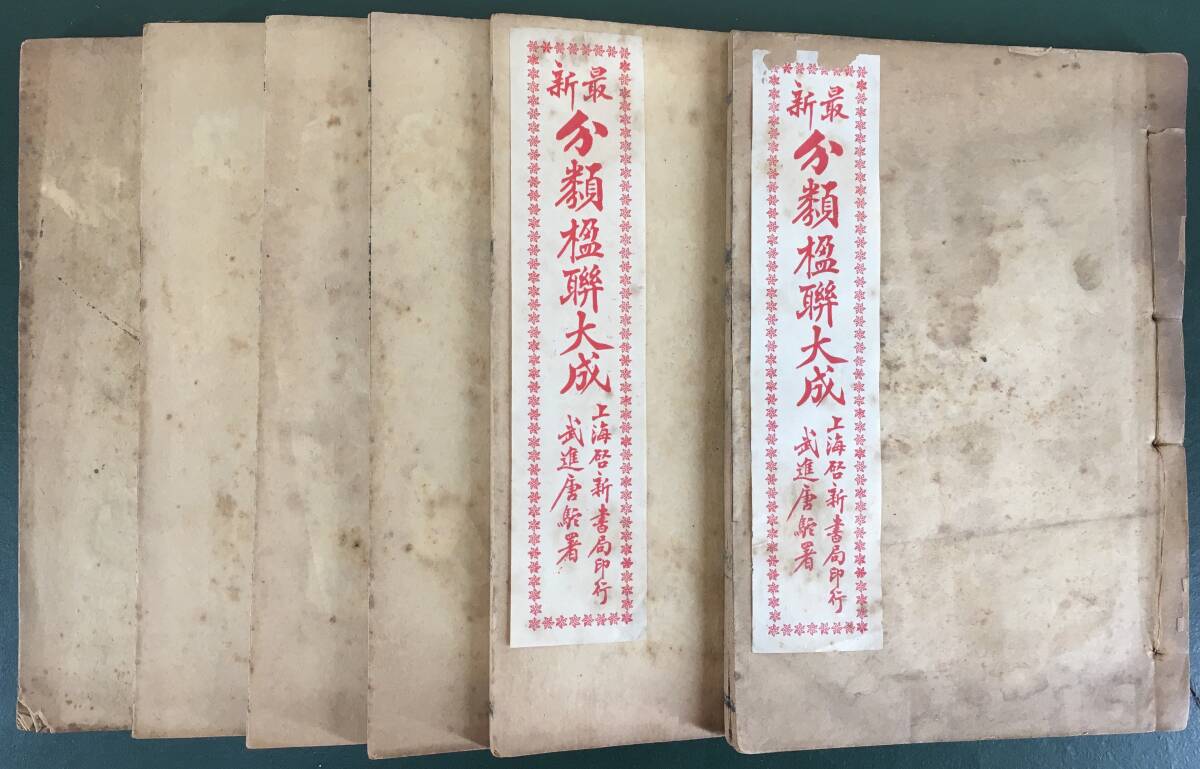 最新
分類楹聯大成
上海启新書局印行
武進唐駝署
最新
分類楹聯大成
上海启新書局印行
武進唐駝署